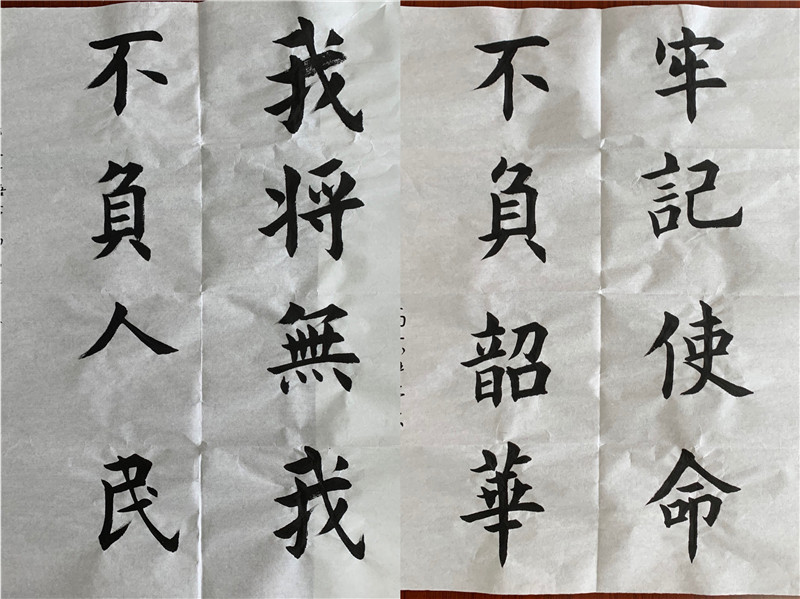 牢記使命
不負韶華
我将無我
不負人民